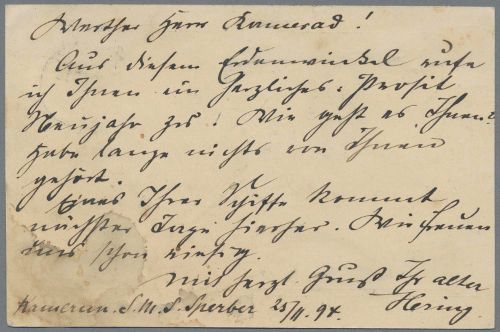 Werther Herr Kamerad!
Aus diesem Erdenwinkel rufe
ich Ihnen ein Herzliches: Prosit
Neujahr zu! Wie geht es Ihnen?
Habe lange nichts von Ihnen
gehört.
Eines Ihrer Schiffe kommt
nächster Tage hierher. Wir freuen
uns schon riesig.
Mit herzl. Gruß Ihr alter
Kamerun. S.M.S. Sperber 25/11. 94.